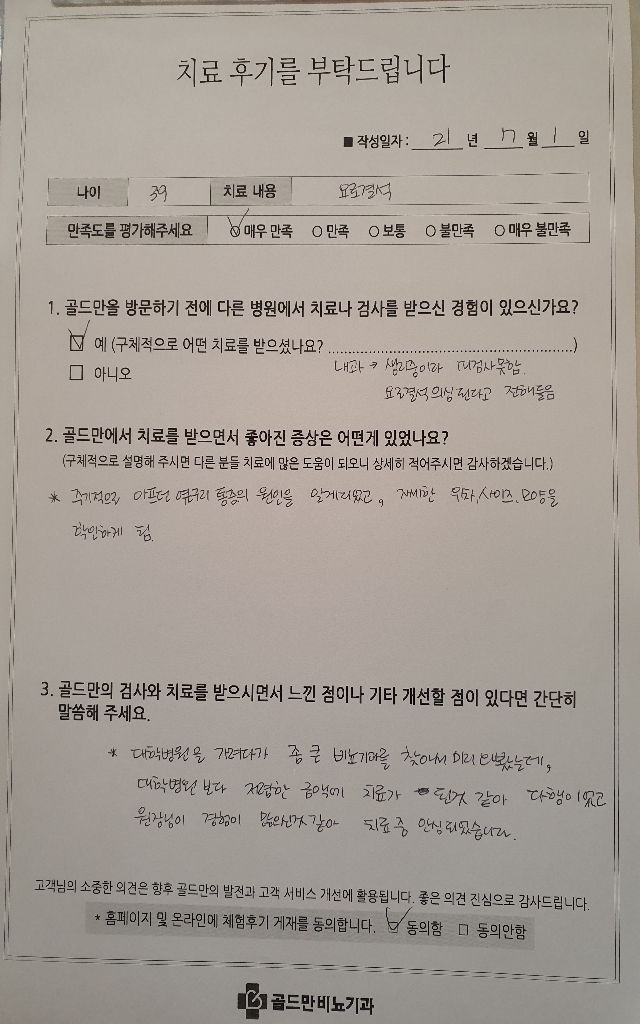 치료 후기를 부탁드립니다
■ 작성일자 : 21 년 7 월 1 일
나이 39 치료 내용 요로결석
만족도를 평가해주세요 매우 만족 만족 보통 불만족 매우 불만족
1. 골드만을 방문하기 전에 다른 병원에서 치료나 검사를 받으신 경험이 있으신가요?
예 (구체적으로 어떤 치료를 받으셨나요? ........................................)
아니오
내과 → 생리중이라 피검사못함.
요로결석 의심된다고 전해들음
2. 골드만에서 치료를 받으면서 좋아진 증상은 어떤게 있었나요?
(구체적으로 설명해 주시면 다른 분들 치료에 많은 도움이 되오니 상세히 적어주시면 감사하겠습니다.)
* 주기적으로 아프던 옆구리 통증의 원인을 알게되었고, 자세한 사이즈, 모양을
확인하게 됨.
3. 골드만의 검사와 치료를 받으시면서 느낀 점이나 기타 개선할 점이 있다면 간단히
말씀해 주세요.
* 대학병원을 가려다가 좀 큰 비뇨기과를 찾아서 미리 와봤는데,
대학병원 보다 저렴한 금액에 치료가 된것 같아 다행이었고
원장님이 경험이 많으신것 같아 치료 중 안심되었습니다.
고객님의 소중한 의견은 향후 골드만의 발전과 고객 서비스 개선에 활용됩니다. 좋은 의견 진심으로 감사드립니다.
* 홈페이지 및 온라인에 체험후기 게재를 동의합니다. 동의함 동의안함
골드만비뇨기과